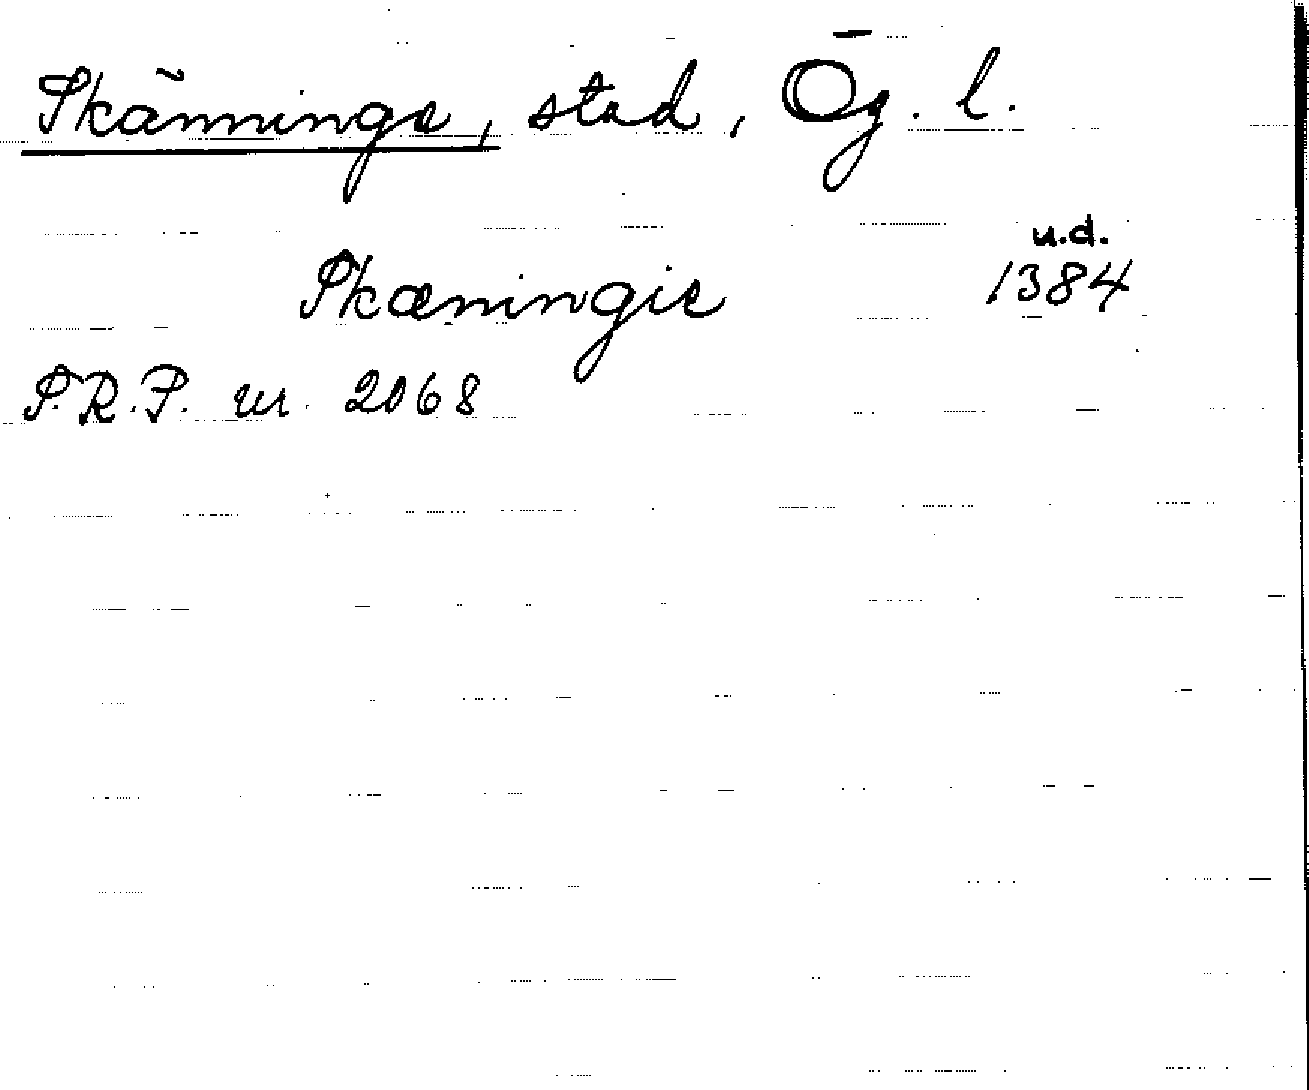 Skänninge, stad, Ög. l.
u.d.
Skæningie 1384
S.R.P. nr. 2068